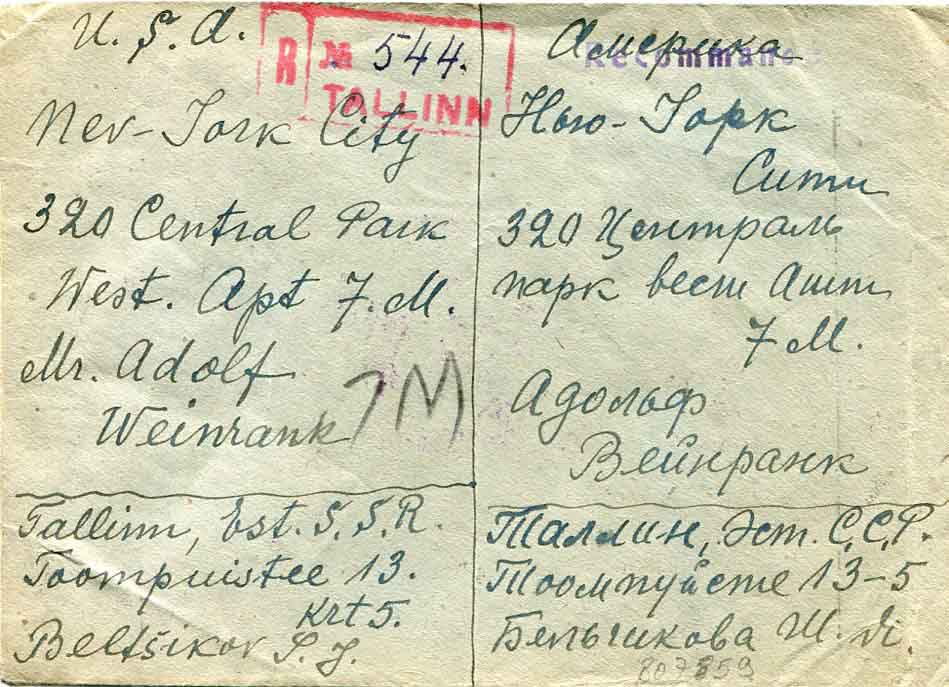 U. S. A.
R № 544.
TALLINN
Nev-York City
320 Central Park
West. Apt 7. M.
Mr. Adolf
Weinrank
7M
Tallinn, Est. S. S. R.
Toompuistee 13.
Krt 5.
Beltšikov S. J.
Америка
Recommandé
Нью-Йорк
Сити
320 Централь
парк вест Апт
7 М.
Адольф
Вейнранк
Таллин, Эст. С.С.Р.
Тоомпуйсте 13-5
Бельчикова Ш. Я.